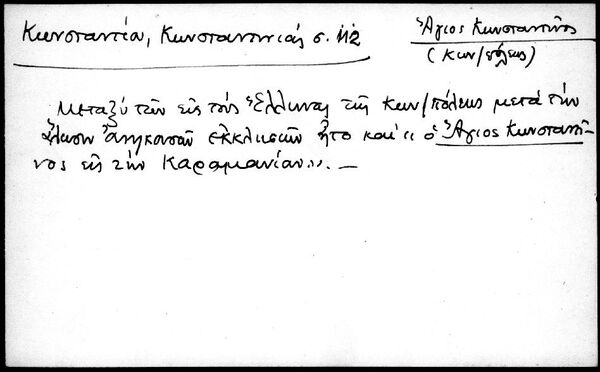 Κωνσταντίου, Κωνσταντινιάς σ. 112
Ἅγιος Κωνσταντῖνος
(Κων/πόλεως)
Μεταξύ τῶν εἰς τούς Ἕλληνας τῆς Κων/πόλεως μετά τήν
ἅλωσιν ἀνηκουσῶν ἐκκλησιῶν ἦτο καί "ὁ Ἅγιος Κωνσταντῖ-
νος εἰς τήν Καραμανίαν". —